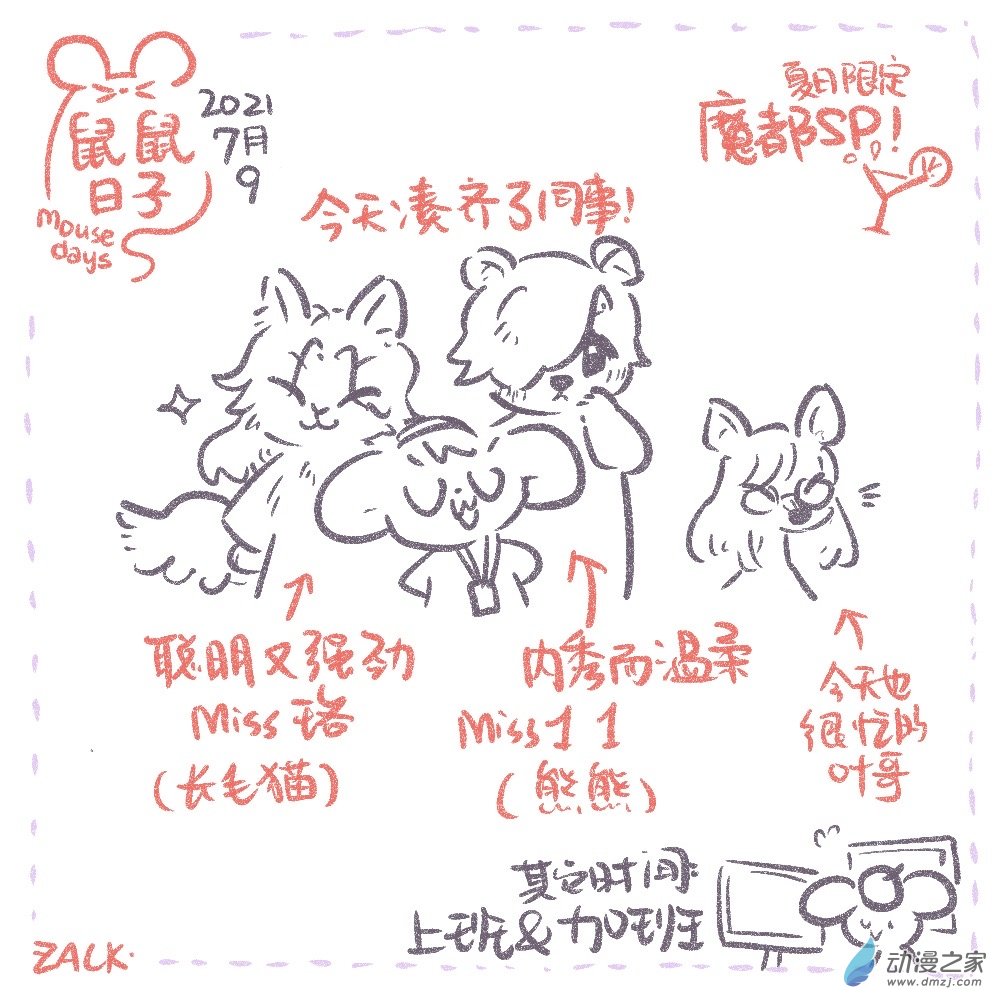 鼠鼠
日子
mouse
days
2021
7月
9
夏日限定
魔都SP!
今天凑齐了同事!
聪明又强劲
Miss珞
(长毛猫)
内秀而温柔
Miss11
(熊熊)
今天也
很忙的
叶哥
其它时间:
上班&加班
ZALK.
动漫之家
www.dmzj.com